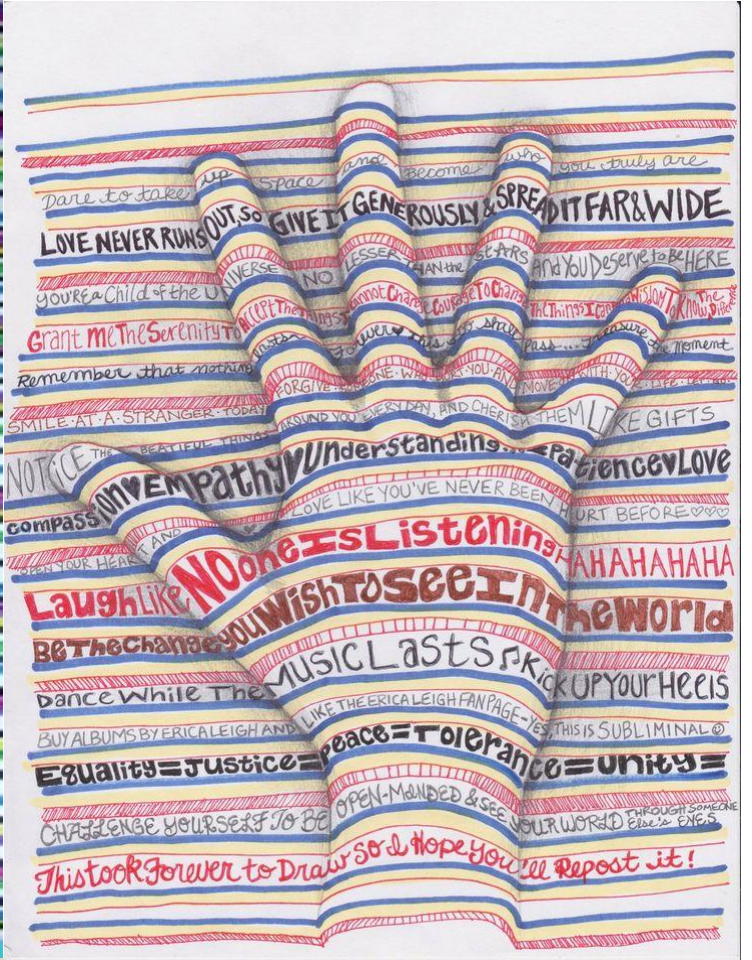 Dare to take up Space and Become who you truly are
LOVE NEVER RUNS OUT, SO GIVE IT GENEROUSLY & SPREAD IT FAR & WIDE
YOU'RE a Child of the UNIVERSE NO LESSER THAN the STARS And YOU Deserve to Be HERE
Grant me The Serenity To ACCEPT The THINGS I Cannot Change Courage To Change The Things I Can & WISDOM To Know The Difference
Remember that nothing lasts forever ♥ This too shall pass... Treasure the Moment
SMILE·AT·A·STRANGER·TODAY FORGIVE·SOMEONE·WHO YOU·AND MOVE WITH·YOUR·LIFE·LET·GO
NOTICE THE BEATIFUL THINGS AROUND YOU EVERY DAY, AND CHERISH THEM LIKE GIFTS
compassion♥EMPathy♥Understanding...Patience♥LOVE
OPEN YOUR HEART AND LOVE LIKE YOU'VE NEVER BEEN HURT BEFORE♡♡♡
Laugh Like NO one Is Listening HAHAHAHAHA
Be The Change you Wish To See In The World
Dance While The MUSIC LaStS ♫ Kick UP YOUR Heels
BUY ALBUMS BY ERICA LEIGH AND LIKE THE ERICA LEIGH FAN PAGE-YES, THIS IS SUBLIMINAL ☺
Equality=Justice=Peace=Tolerance=Unity=
CHALLENGE YOURSELF TO BE OPEN-MINDED & SEE YOUR WORLD THROUGH SOMEONE Else's EYES
This took Forever to Draw So I Hope You'll Repost it!